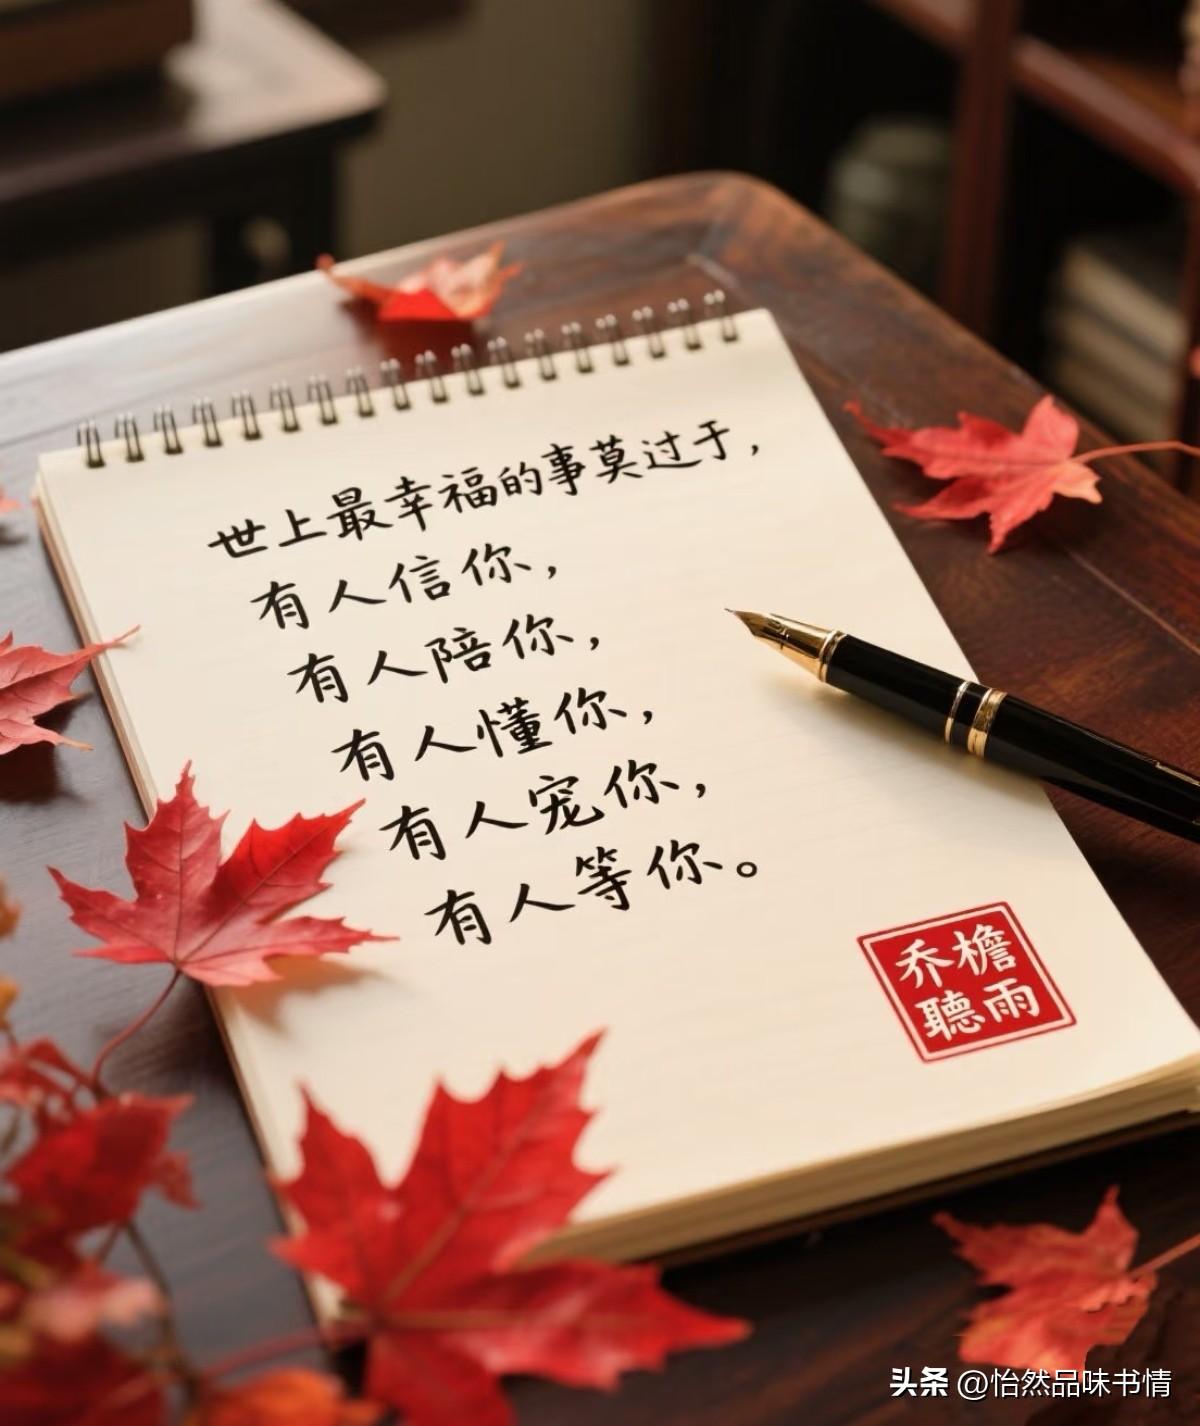 世上最幸福的事莫过于，
有人信你，
有人陪你，
有人懂你，
有人宠你，
有人等你。
乔檐
聽雨
头条 @怡然品味书情